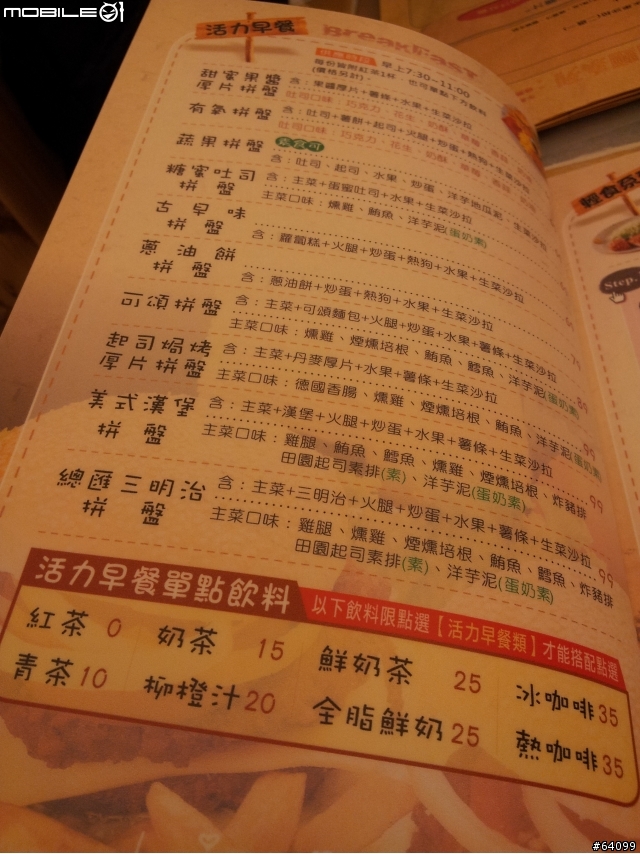 MOBILE01
活力早餐 Breakfast
供應時段 早上7:30~11:00
每份皆附紅茶1杯 也可單點下方飲料
(價格另計)
甜蜜果醬
厚片拼盤
含：果醬厚片+薯條+水果+生菜沙拉
吐司口味：巧克力、花生、奶酥
有氧拼盤
含：吐司+薯餅+起司+火腿+炒蛋+熱狗+水果+生菜沙拉
吐司口味：巧克力、花生、奶酥
蔬果拼盤
含：吐司、起司、水果、炒蛋、洋芋地瓜泥、生菜沙拉
糖蜜吐司
拼盤
含：主菜+蛋蜜吐司+水果+生菜沙拉
主菜口味：燻雞、鮪魚、洋芋泥(蛋奶素)
古早味
拼盤
含：蘿蔔糕+火腿+炒蛋+熱狗+水果+生菜沙拉
蔥油餅
拼盤
含：蔥油餅+炒蛋+熱狗+水果+生菜沙拉
可頌拼盤
含：主菜+可頌麵包+火腿+炒蛋+水果+薯條+生菜沙拉
主菜口味：燻雞、煙燻培根、鮪魚、鱈魚、洋芋泥(蛋奶素) 89
起司焗烤
厚片拼盤
含：主菜+丹麥厚片+水果+薯條+生菜沙拉
主菜口味：德國香腸、燻雞、煙燻培根、鮪魚、洋芋泥(蛋奶素) 95
美式漢堡
拼盤
含：主菜+漢堡+火腿+炒蛋+水果+薯條+生菜沙拉
主菜口味：雞腿、鮪魚、鱈魚、燻雞、煙燻培根、炸豬排 99
田園起司素排(素)、洋芋泥(蛋奶素)
總匯三明治
拼盤
含：主菜+三明治+火腿+炒蛋+水果+薯條+生菜沙拉
主菜口味：雞腿、燻雞、煙燻培根、鮪魚、鱈魚、炸豬排 99
田園起司素排(素)、洋芋泥(蛋奶素)
活力早餐單點飲料 以下飲料限點選【活力早餐類】才能搭配點選
紅茶 0 奶茶 15 鮮奶茶 25 冰咖啡 35
青茶 10 柳橙汁 20 全脂鮮奶 25 熱咖啡 35
Step.
#64099